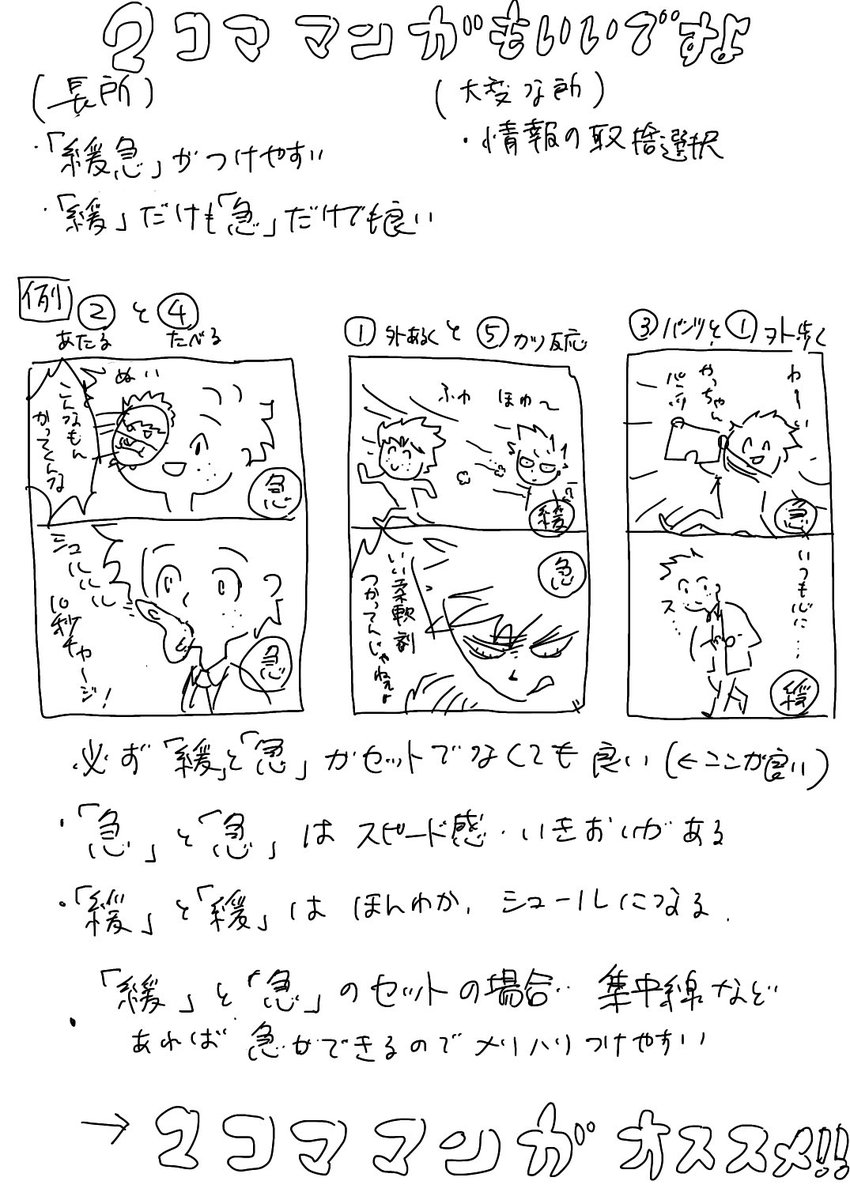 2コママンガもいいですよ
(長所)
・「緩急」がつけやすい
・「緩」だけも「急」だけでも良い
(大変な所)
・情報の取捨選択
例
②と④
あたる たべる
ぬい
こんなもん
かってくんな
急
シュルルルル
10秒チャージ!
急
①外あるくと⑤カツ反応
ふわ
ほわ〜
緩
急
いい柔軟剤
つかってんじゃねぇよ
③パンツと①ソト歩く
わーい
かっちゃん
パンツ
急
いつも心に…
ス…
緩
必ず「緩」と「急」がセットでなくても良い(←ココが良い)
・「急」と「急」はスピード感・いきおいがある
・「緩」と「緩」はほんわか、シュールになる.
・「緩」と「急」のセットの場合‥集中線など
あれば急ができるのでメリハリつけやすい
→2コママンガオススメ!!